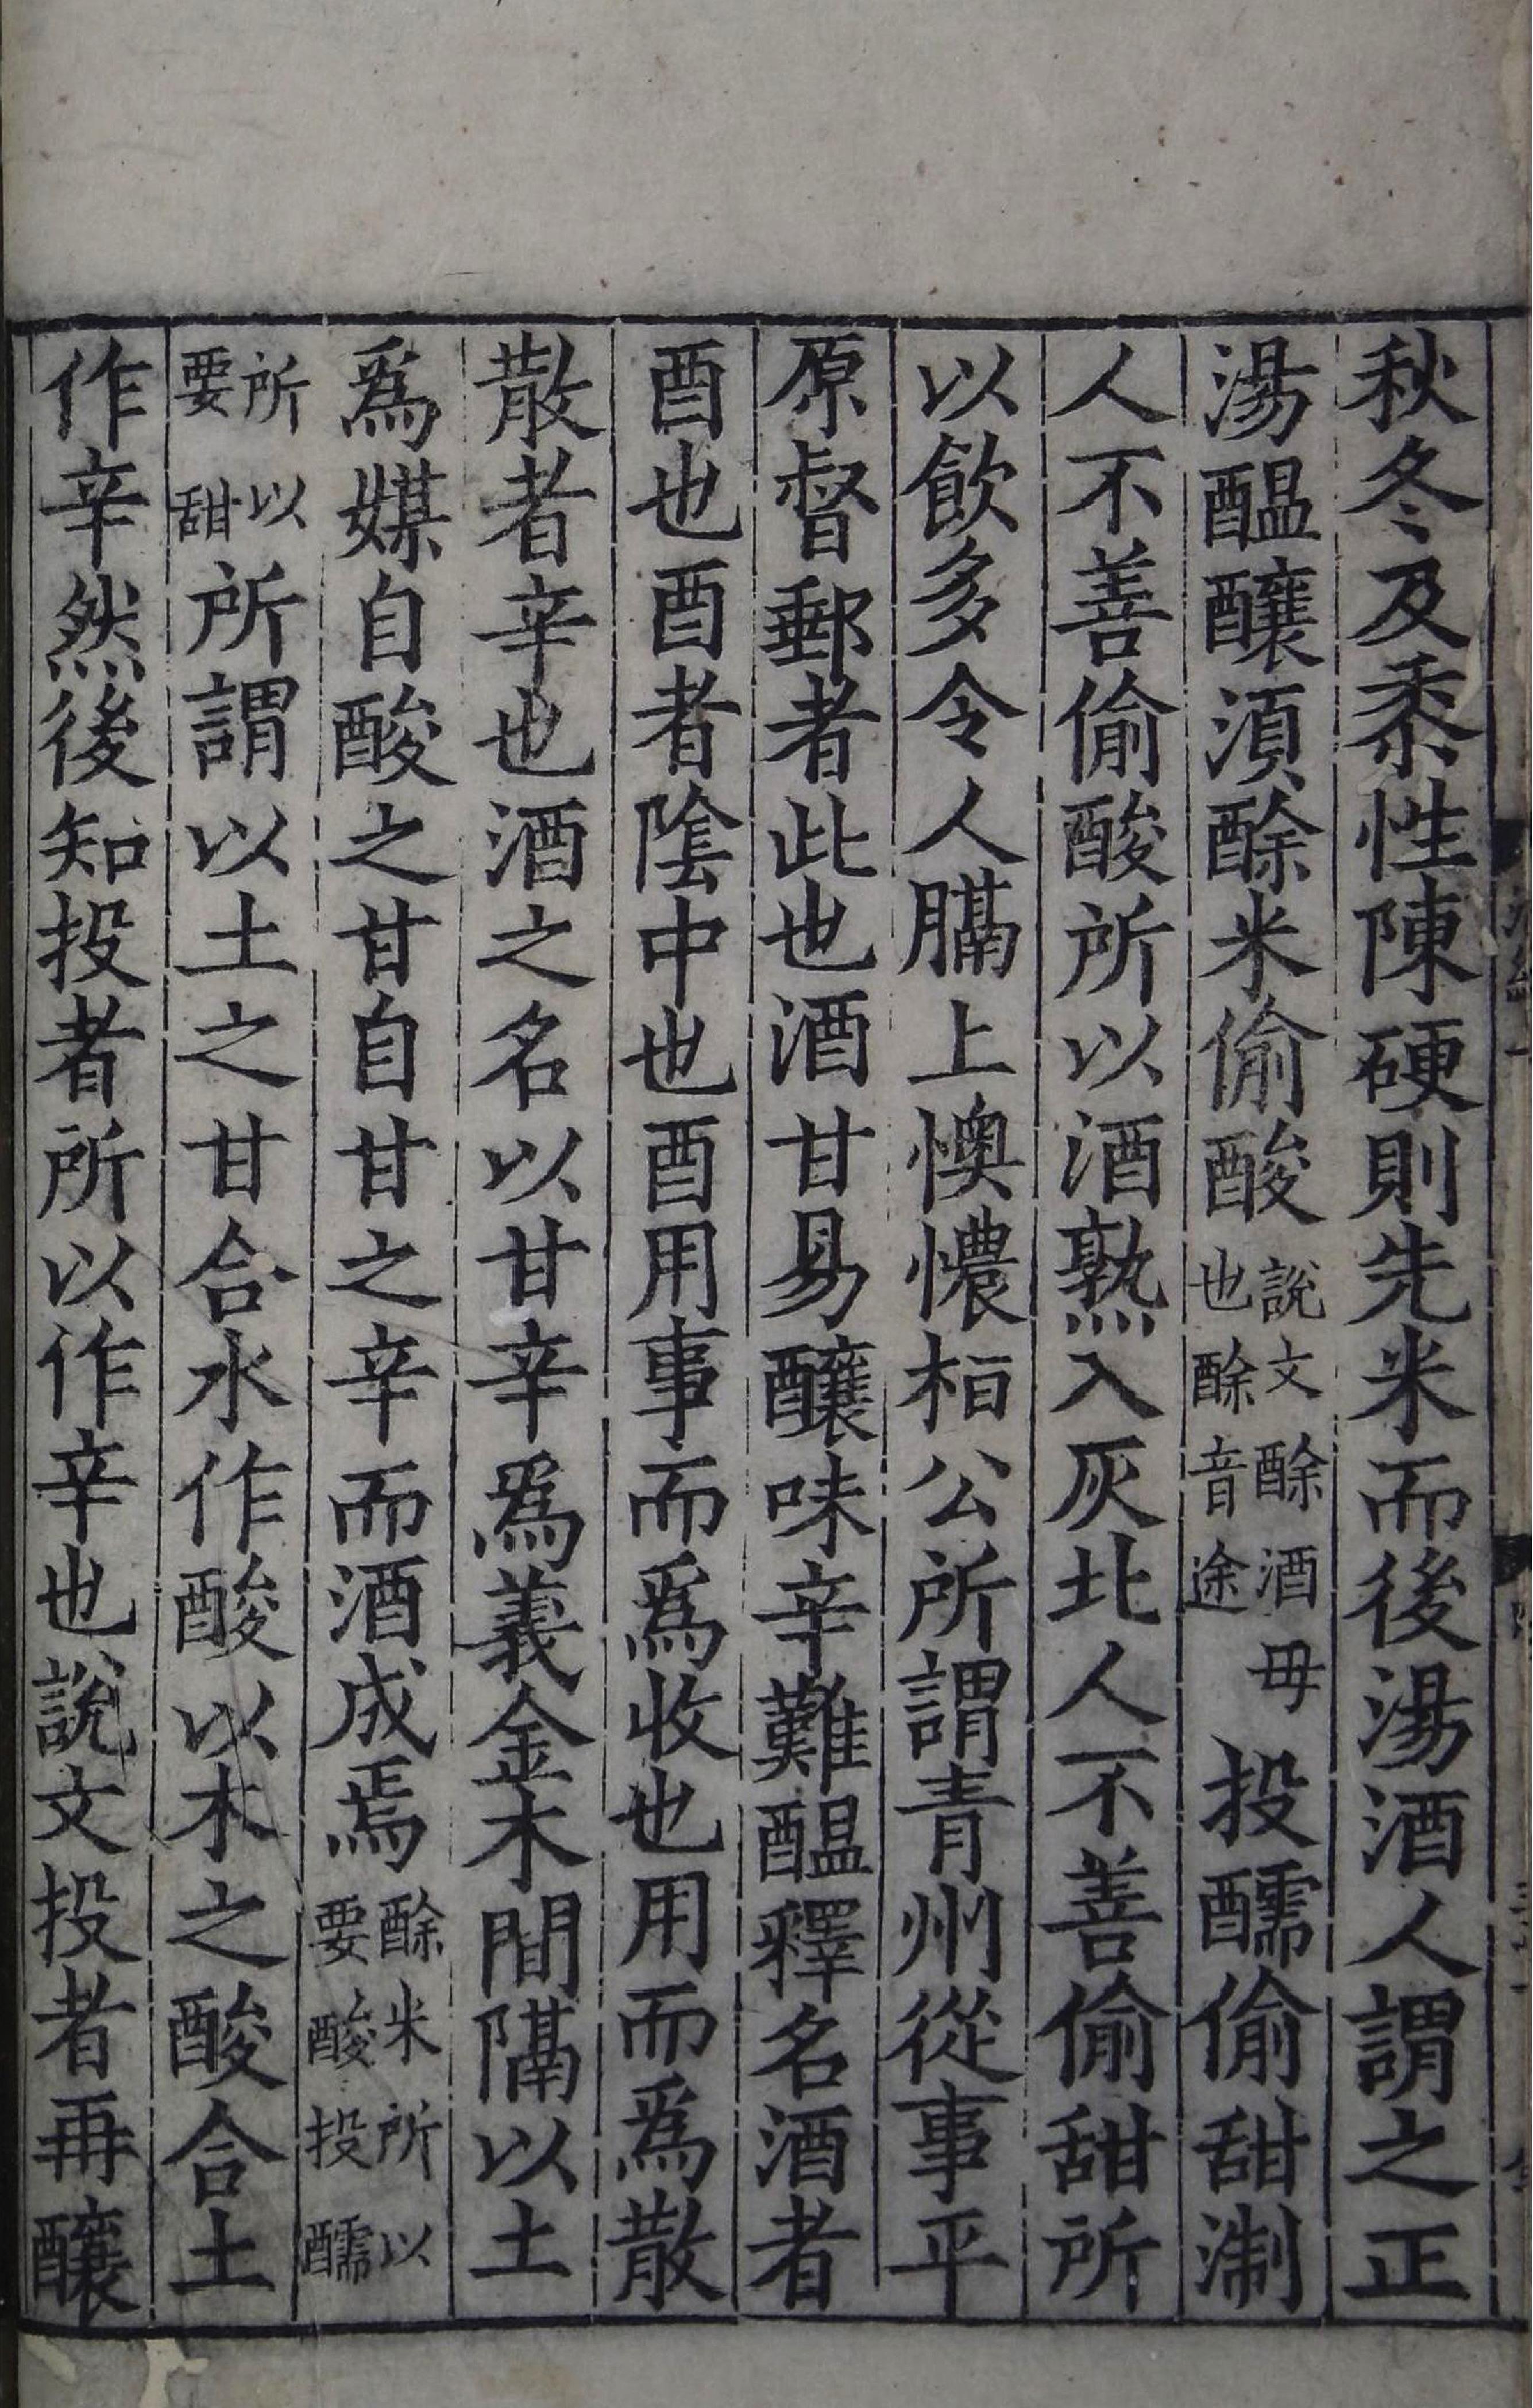 秋冬及黍性陳硬則先米而後湯酒人謂之正
湯醖釀湏酴米偷酸說文酴酒毋也酴音途投醹偷甜淛
人不善偷酸所以酒熟入灰北人不善偷甜所
以飲多令人膈上懊憹桓公所謂青州從事平
原督郵者此也酒甘易釀味辛難醖釋名酒者
酉也酉者陰中也酉用事而爲收也用而爲散
散者辛也酒之名以甘辛爲義金木間隔以土
爲媒自酸之甘自甘之辛而酒成焉酴米所以要酸投醹
所以要甜所謂以土之甘合水作酸以木之酸合土
作辛然後知投者所以作辛也說文投者再釀